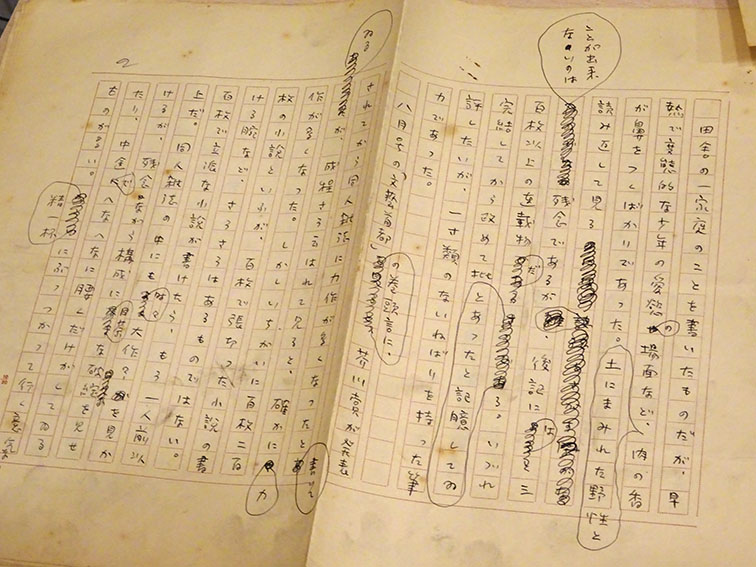 田舎の一家庭のことを書いたものだが、早
熱で変態的な少年の愛慾の場面など、肉の香
が鼻をつくばかりであった。土にまみれた野性と
読み返して見る
ことが出来ないのは残念であるが、後記には三
百枚以上の連載物だとあったと記臆してゐる。いづれ
完結してから改めて批
評したいが、一寸類のないねばりを持った筆
力であった。
八月号の「文藝首都」の巻頭言に、芥川賞が発表
されてから同人雑誌に力作が多くなったと書いて
ゐるが、成程さう云はれて見ると、確かに力
作が多くなった。しかしいちがいに百枚二百
枚の小説といふが、百枚で張切った小説の書
ける腕など、さうざらはあるものではない。
百枚で立派な小説が書けたら、もう一人前以
上だ。同人雑誌の中にも時々大作を見か
けるが、残念ながら構成に目茶な破綻を見せ
たり、中途でへなへなに腰くだけがしてゐる
ものが多い。
精一杯にぶっつかって行く意気